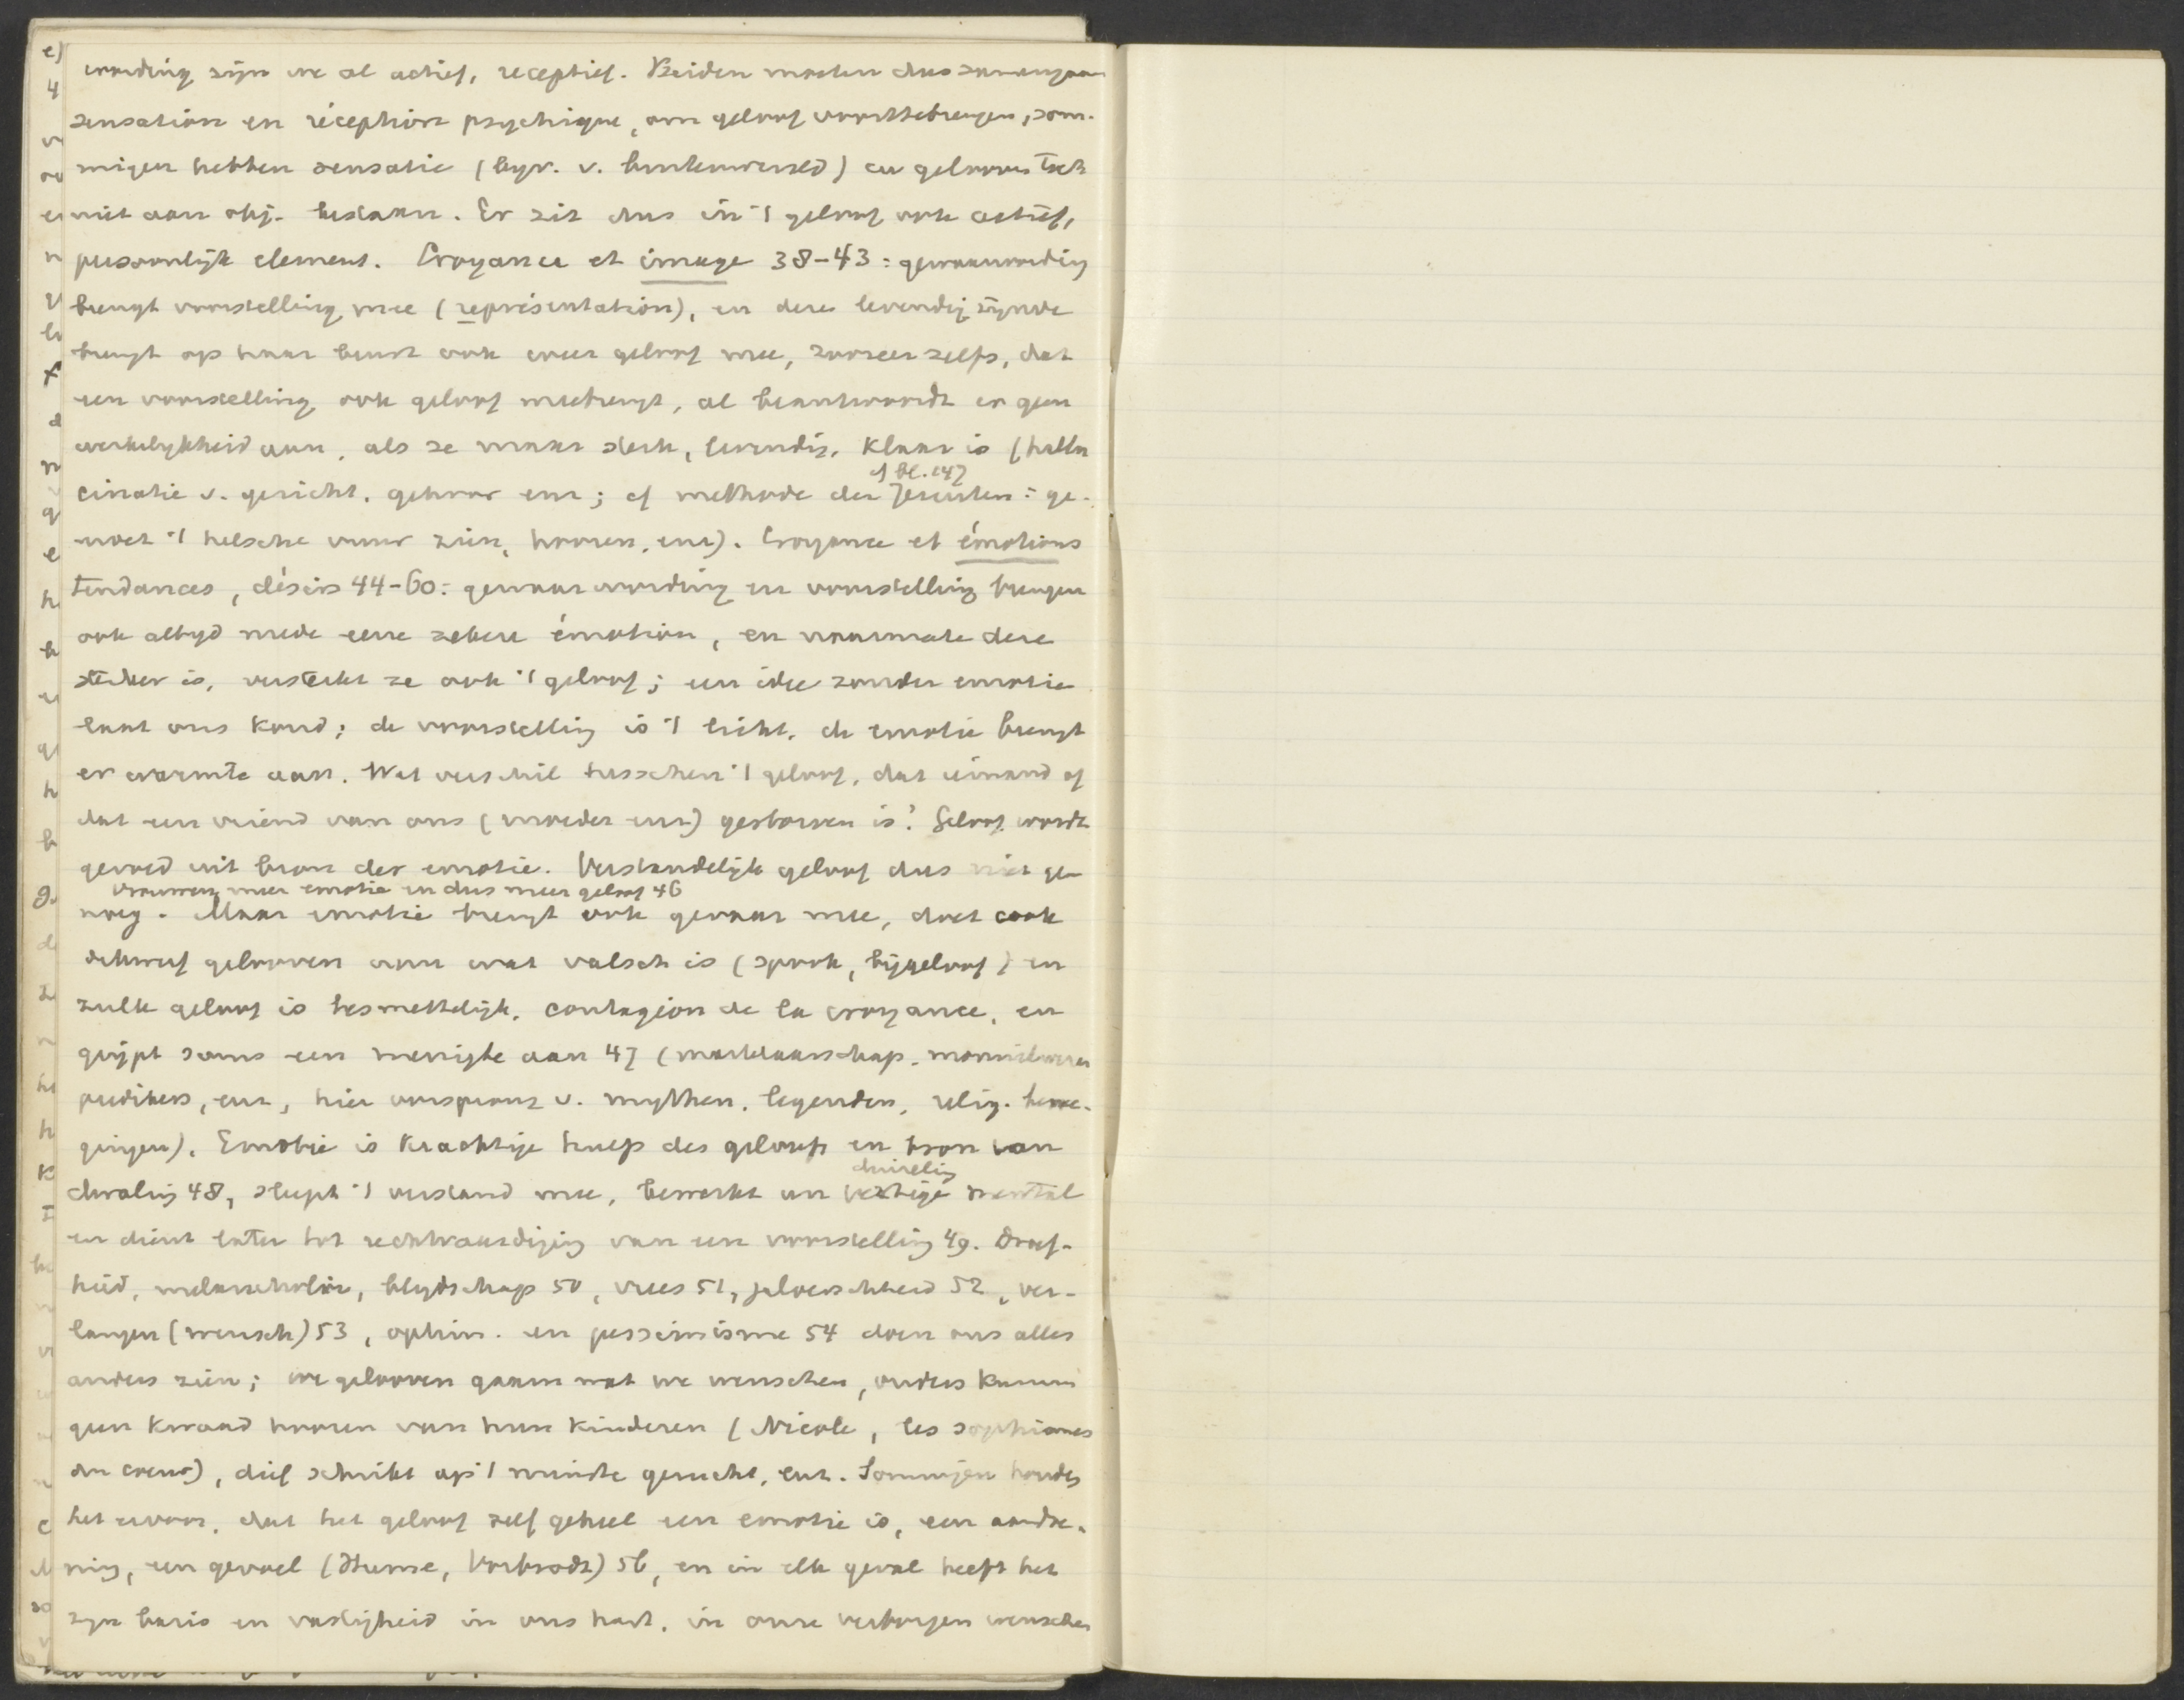 wording zijn we al actief, receptief. Beiden moeten dus samengaan
sensation en réception psychique, om geloof voorttebrengen, som-
migen hebben sensatie (byv. v. buitenwereld) en gelooven toch
niet aan obj. bestaan. Er zit dus in 't geloof ook actief,
persoonlijk element. Croyance et image 38-43: gewaarwording
brengt voorstelling mee (représentation), en deze levendig zijnde
brengt op haar beurt ook weer geloof mee, zoozeer zelfs, dat
een voorstelling ook geloof meebrengt, al beantwoordt er geen
werkelykheid aan, als ze maar sterk, levendig, klaar is (hallu
cf bl. 147
cinatie v. gezicht, gehoor enz; cf methode der Jezuiten: ge-
moet 't helsche vuur zien, hooren, enz). Croyance et émotions
tendances, désirs 44-60: gewaarwording en voorstelling brengen
ook altyd mede eene zekere émotion, en naarmate deze
sterker is, versterkt ze ook 't geloof; een idee zonder emotie
laat ons koud; de voorstelling is 't licht, de emotie brengt
er warmte aan. Wat verschil tusschen 't geloof, dat iemand of
dat een vriend van ons (moeder enz) gestorven is? Geloof wordt
gevoed uit bron der emotie. Verstandelijk geloof dus niet ge-
Vrouwen meer emotie en dus meer geloof 46
noeg. Maar emotie brengt ook gevaar mee, doet ook
scheef gelooven aan wat valsch is (spook, bijgeloof) en
zulk geloof is besmettelijk, contagion de la croyance, en
grijpt soms een menigte aan 47 (martelaarschap, monnikwezen
predikers, enz, hier oorsprong v. mythen, legenden, relig. bewe-
gingen). Emotie is krachtige hulp des geloofs en bron van
duizelig
dwaling 48, sleept 't verstand mee, bewerkt un vertige mental
en dient later tot rechtvaardiging van een voorstelling 49. Droef-
heid, melancholie, blydschap 50, vrees 51, jaloerschheid 52, ver-
langen (wensch) 53, optim. en pessimisme 54 doen ons alles
anders zien; we gelooven gaarn wat we wenschen, ouders kunnen
geen kwaad hooren van hun kinderen (Nicole, les sophismes
du coeur), dief schrikt op 't minste gerucht, enz. Sommigen houden
het ervoor, dat het geloof zelf geheel een emotie is, een aandoe-
ning, een gevoel (Hume, Vorbrodt) 56, en in elk geval heeft het
zyn basis en vastigheid in ons hart, in onze verborgen wenschen